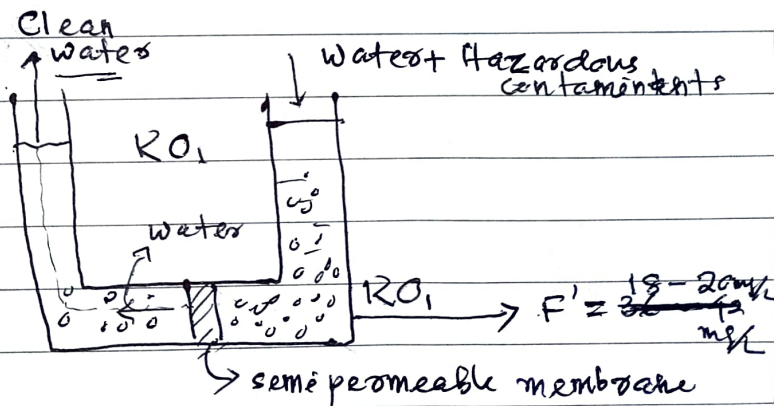 Clean
water
water + Hazardous
contamintents
RO1
water
RO1
F' = 18 - 20 mg/L
mg/L
semipermeable membrane